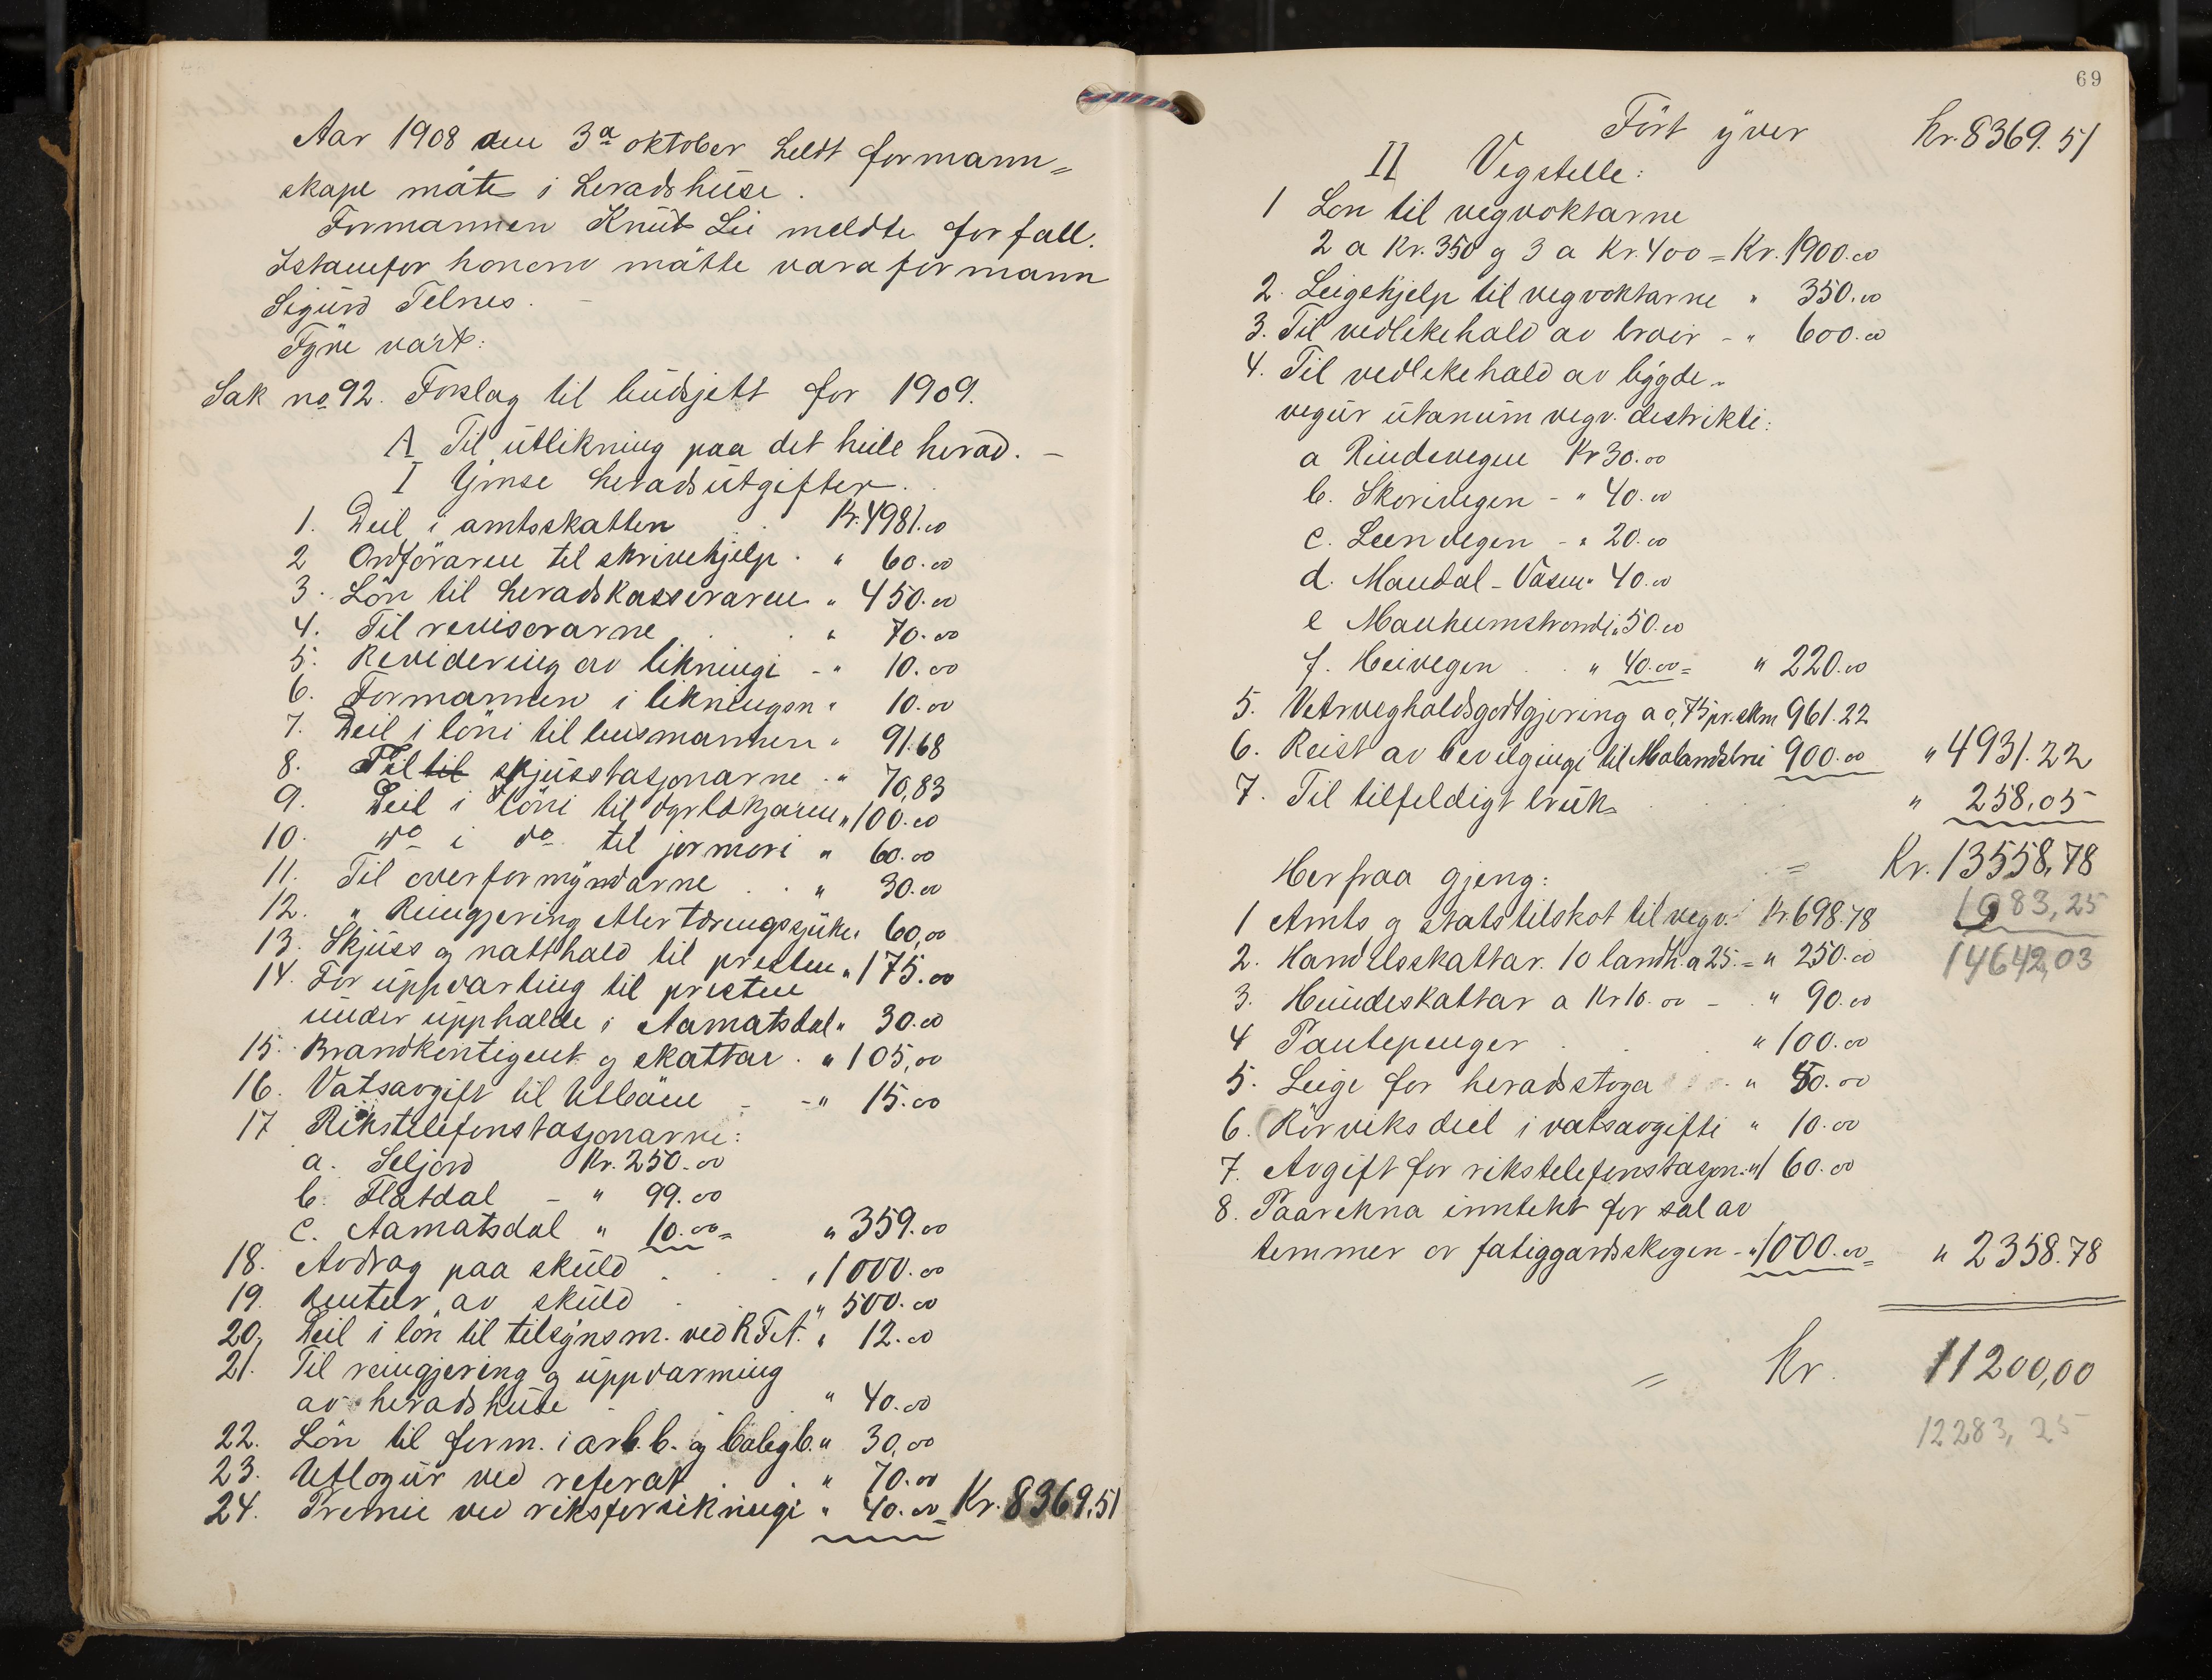 Aar 1908 den 3a oktober heldt formann-
skape møte i heradshuse.
Formannen Knut Lie meldte forfall.
Istaenfor honom møtte varaformann
Sigurd Telnes.
Fyre vart:
Sak no 92. Forslag til budsjett for 1909.
A Til utlikning paa det heile herad. -
I Ymse heradsutgifter.
1. Deil i amtsskatten Kr. 4981.00
2 Ordföraren til skrivehjelp . " 60.00
3. Lön til heradskasseraren " 450.00
4. Til revisorarne . . " 70.00
5. Revidering av likningi - " 10.00
6. Formannen i likningsn " 10.00
7. Deil i löni til lensmannen " 91.68
8. Til til skjusstasjonarne . " 70,83
9. Deil i löni til dyrlækjaren " 100.00
10. do i do til jormori " 60.00
11. Til overformyndarne . . " 30.00
12. " Reingjering etter tæringssjuke " 60,00
13. Skjuss og natthald til presten " 175.00
14. For uppvarting til presten
under upphalde i Aamatsdal " 30.00
15. Brandkontigent og skattar . " 105,00
16. Vatsavgift til Utbøen - - " 15.00
17 Rikstelefonstasjonarne:
a. Seljord Kr. 250.00
b. Flatdal - " 99.00
c. Aamatsdal " 10.00 = " 359.00
18. Avdrag paa skuld . . . " 1000.00
19. Rentur av skuld . . " 500.00
20. Deil i lön til tilsynsm. ved R.T.A. " 12.00
21. Til reingjering og uppvarming
av heradshuse . . " 40.00
22. Lön til form. i arb.b. og b. " 30,00
23. Utlogur ved referat . . " 70.00
24. Premie ved riksforsikringi " 40.00 = Kr. 8369.51
69
Fört yver Kr. 8369.51
II Vegstelle:
1 Løn til vegvoktarne
2 a Kr. 350 og 3 a Kr. 400 = Kr. 1900.00
2. Leigehjelp til vegvoktarne " 350.00
3. Til vedlikehald av bruer - " 600.00
4. Til vedlikehald av bygde-
vegur utanum vegv. distrikti:
a Rindevegen Kr 30.00
b. Skorivegen - " 40.00
c. Leenvegen - " 20.00
d. Mandal - Vasen " 40.00
e Manheimstrondi " 50.00
f. Heivegen . . " 40.00 = " 220.00
5. Vetrvegholdsgodtgjering a 0,75 pr. skm 961.22
6. Reist av bevilgingi til Molandsbrui 900.00 " 4931.22
7. Til tilfeldigt bruk . . . " 258,05
= Kr. 13558,78
Herfraa gjeng:
1083,25
1 Amts og statstilskot til vegv. Kr. 698.78
14642,03
2. Handelsskattar. 10 landh. a 25. = " 250.00
3. Hundeskattar a Kr 10.00 - . " 90.00
4 Pantepenger . . . " 100.00
5. Leige for heradstoga . " 50.00
6. Rörviks deel i vatsavgifti " 10.00
7. Avgift for rikstelefonstasjon. " 160.00
8. Paarekna inntekt for sal av
tømmer or fatiggardsskogen - " 1000.00 = " 2358.78
= Kr. 11200,00
12283,25